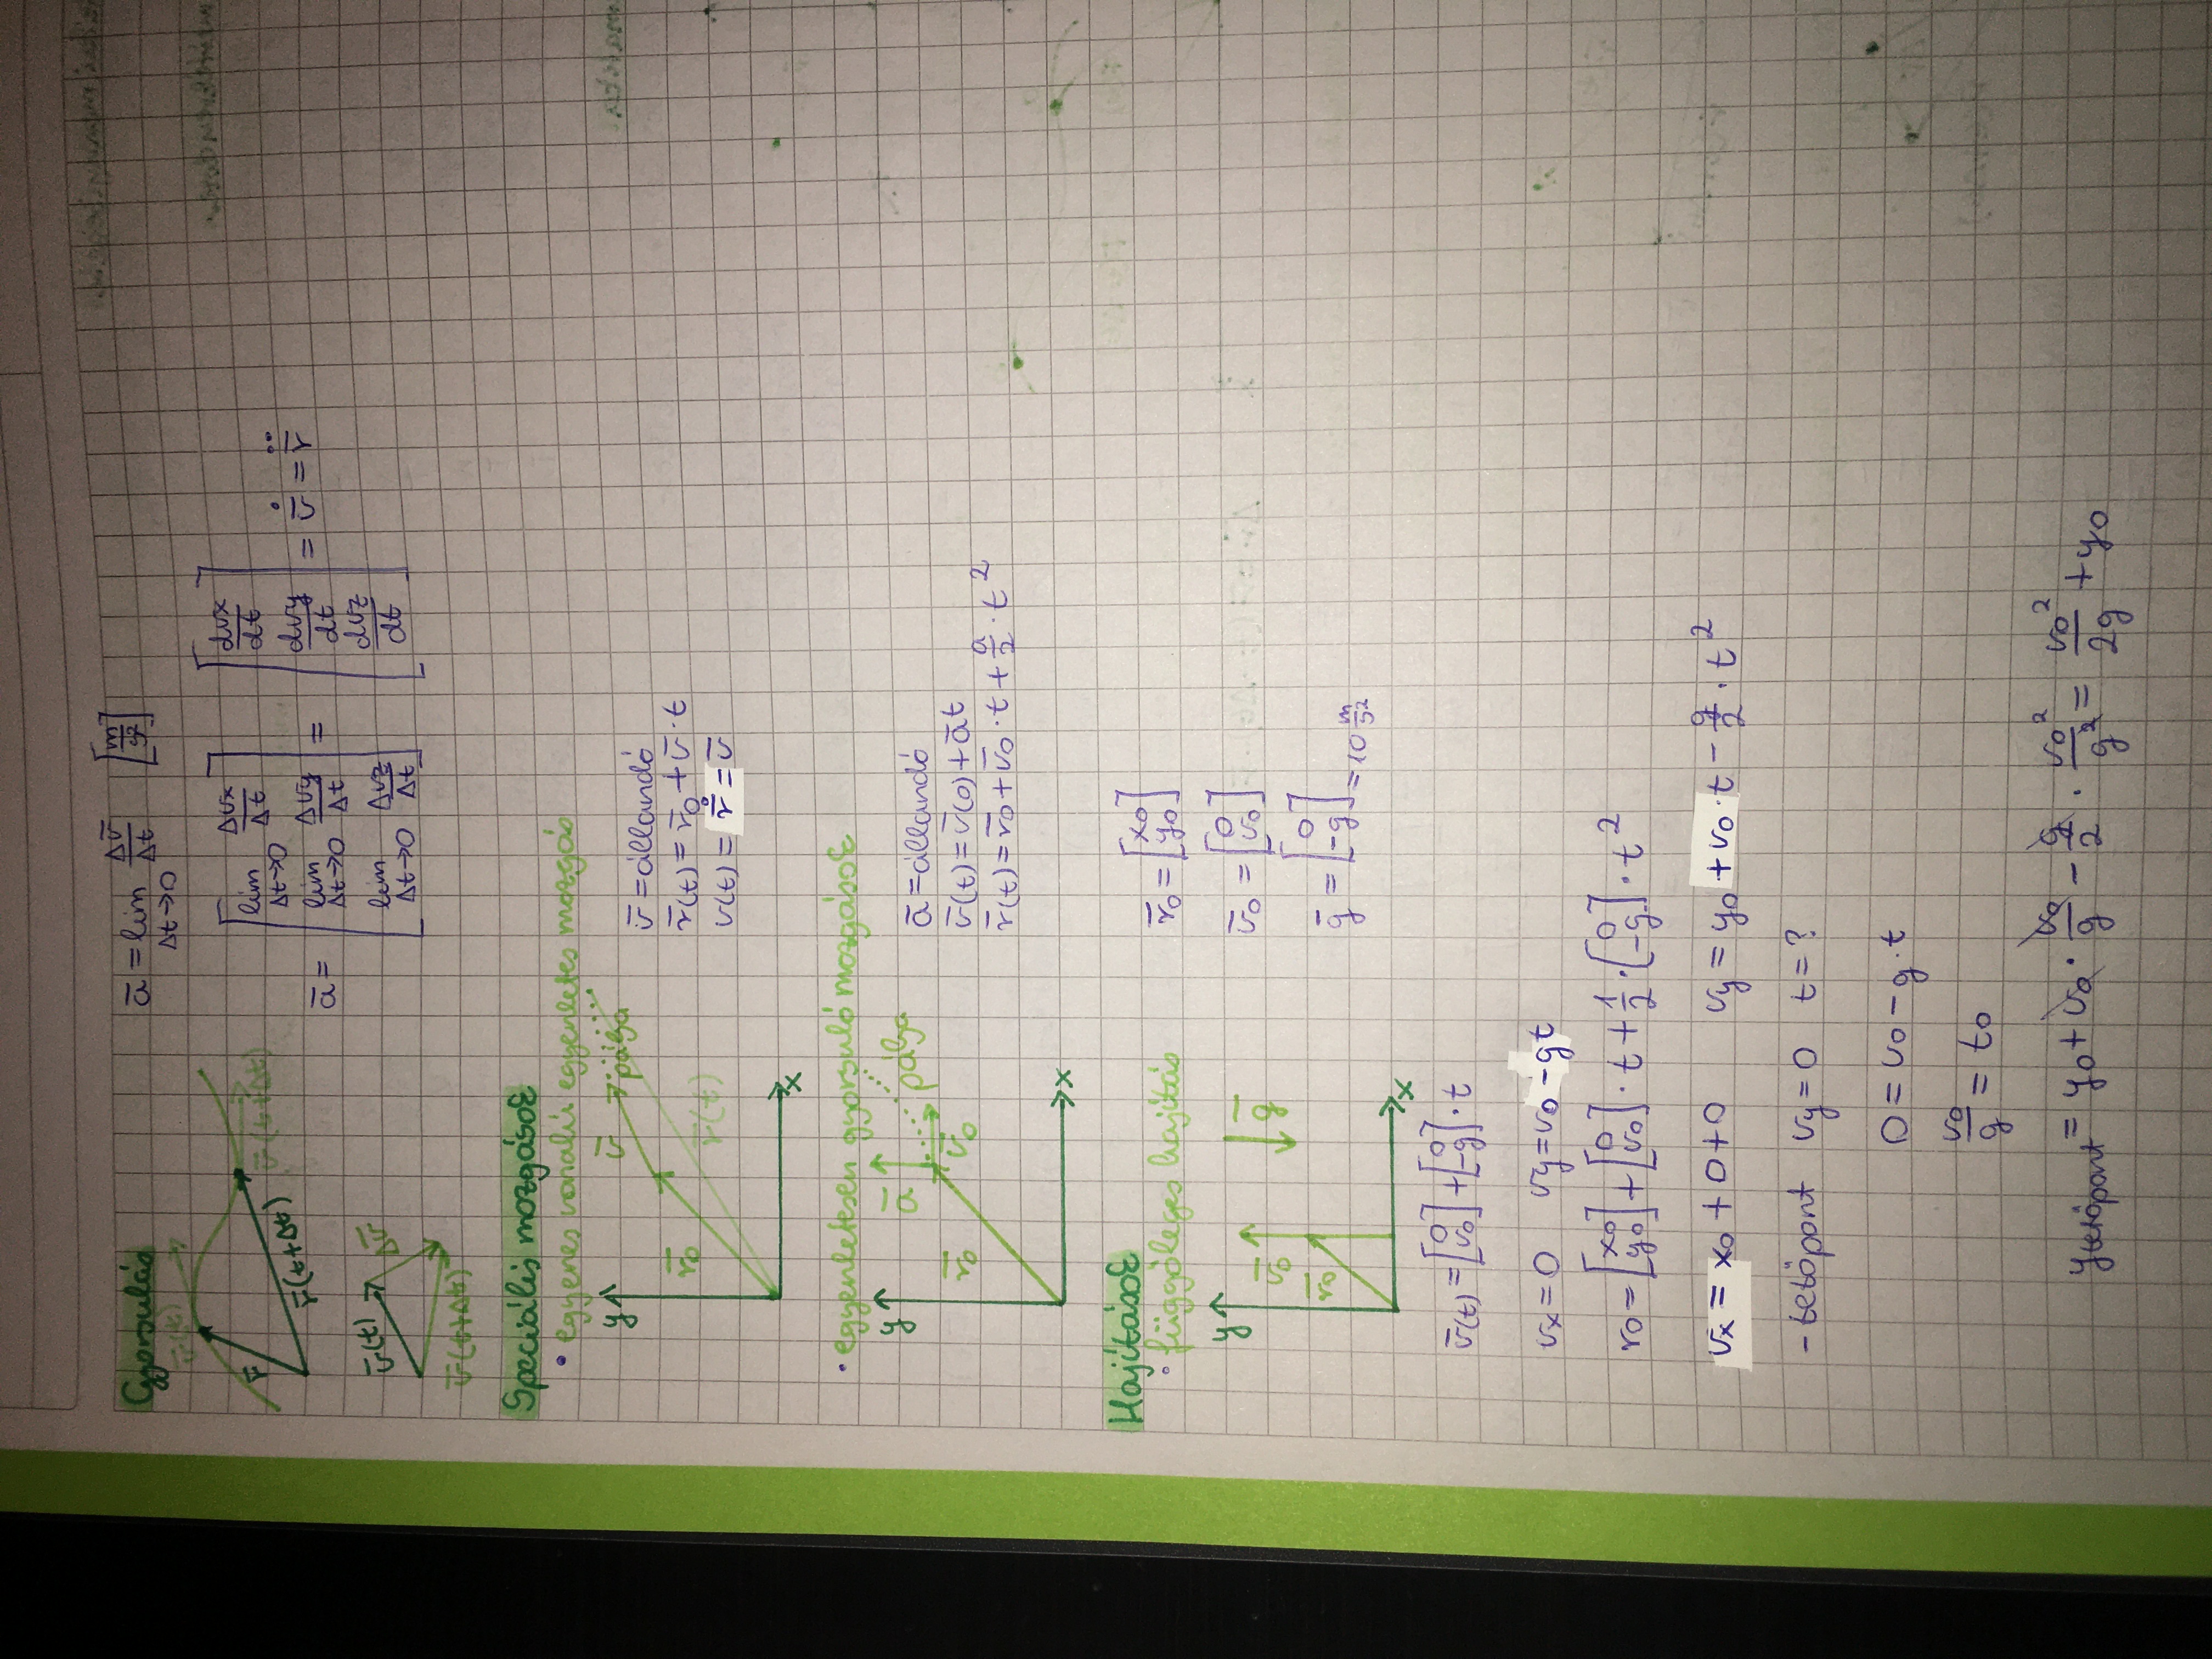 Gyorsulás
a̅ = lim Δt→0 Δv̅/Δt [m/s²]
v̅(t)
r̅
v̅(t+Δt)
r̅(t+Δt)
a̅ = [lim Δt→0 Δvx/Δt; lim Δt→0 Δvy/Δt; lim Δt→0 Δvz/Δt] = [dvx/dt; dvy/dt; dvz/dt] = v̅̇ = r̅̈
v̅(t) Δv̅
v̅(t+Δt)
Speciális mozgások
• egyenes vonalú egyenletes mozgás
y v̅ pálya
r̅0 r̅(t)
x
v̅ = állandó
r̅(t) = r̅0 + v̅ · t
v(t) = r̅̇ = v̅
• egyenletesen gyorsuló mozgások
y a̅ pálya
r̅0 v̅0
x
a̅ = állandó
v̅(t) = v̅(0) + a̅t
r̅(t) = r̅0 + v̅0 · t + a/2 · t²
Hajítások
• függőleges hajítás
y v̅0 g̅
r̅0
x
r̅0 = [x0; y0]
v̅0 = [0; v0]
g̅ = [0; -g] = 10 m/s²
v̅(t) = [0; v0] + [0; -g] · t
vx = 0 vy = v0 - gt
r0 = [x0; y0] + [0; v0] · t + 1/2 · [0; -g] · t²
vx = x0 + 0 + 0 vy = y0 + v0 · t - g/2 · t²
- tetőpont vy = 0 t = ?
0 = v0 - g · t
v0/g = t0
ytetőpont = y0 + v0 · v0/g - g/2 · v0²/g² = v0²/2g + y0